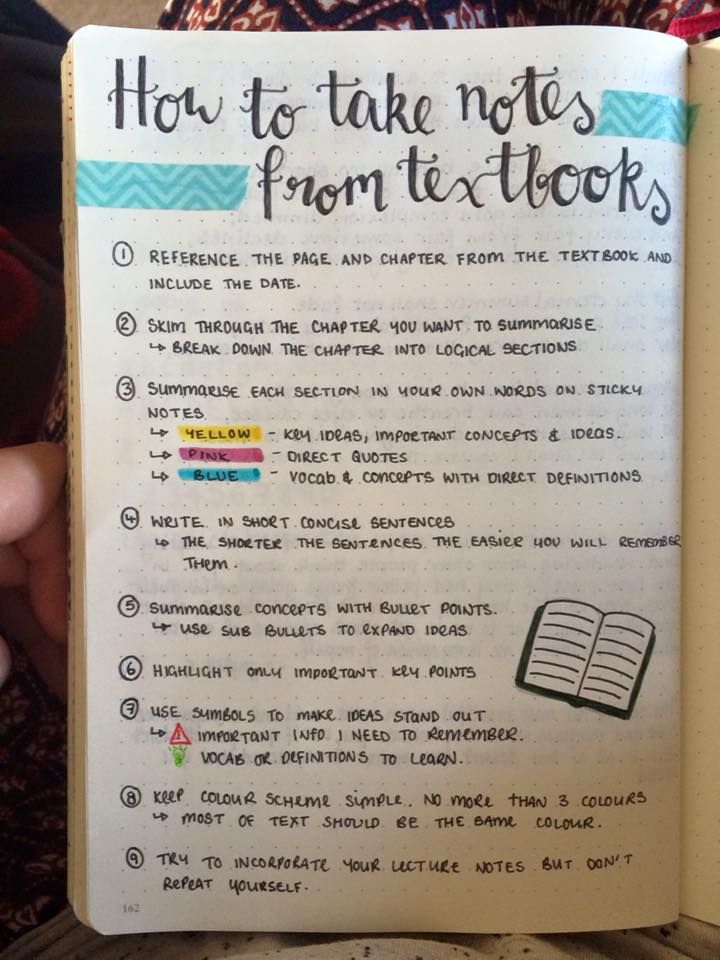 How to take notes
from textbooks
① REFERENCE THE PAGE AND CHAPTER FROM THE TEXTBOOK AND
INCLUDE THE DATE.
② SKIM THROUGH THE CHAPTER YOU WANT TO SUMMARISE
↳ BREAK DOWN THE CHAPTER INTO LOGICAL SECTIONS
③ SUMMARISE EACH SECTION IN YOUR OWN WORDS ON STICKY
NOTES
↳ YELLOW - KEY IDEAS, IMPORTANT CONCEPTS & IDEAS.
↳ PINK - DIRECT QUOTES
↳ BLUE - VOCAB & CONCEPTS WITH DIRECT DEFINITIONS
④ WRITE IN SHORT CONCISE SENTENCES
↳ THE SHORTER THE SENTENCES THE EASIER YOU WILL REMEMBER
THEM.
⑤ SUMMARISE CONCEPTS WITH BULLET POINTS.
↳ USE SUB BULLETS TO EXPAND IDEAS
⑥ HIGHLIGHT ONLY IMPORTANT KEY POINTS
⑦ USE SYMBOLS TO MAKE IDEAS STAND OUT
↳ IMPORTANT INFO I NEED TO REMEMBER.
VOCAB OR DEFINITIONS TO LEARN.
⑧ KEEP COLOUR SCHEME SIMPLE. NO MORE THAN 3 COLOURS
↳ MOST OF TEXT SHOULD BE THE SAME COLOUR.
⑨ TRY TO INCORPORATE YOUR LECTURE NOTES BUT DON'T
REPEAT YOURSELF.
162